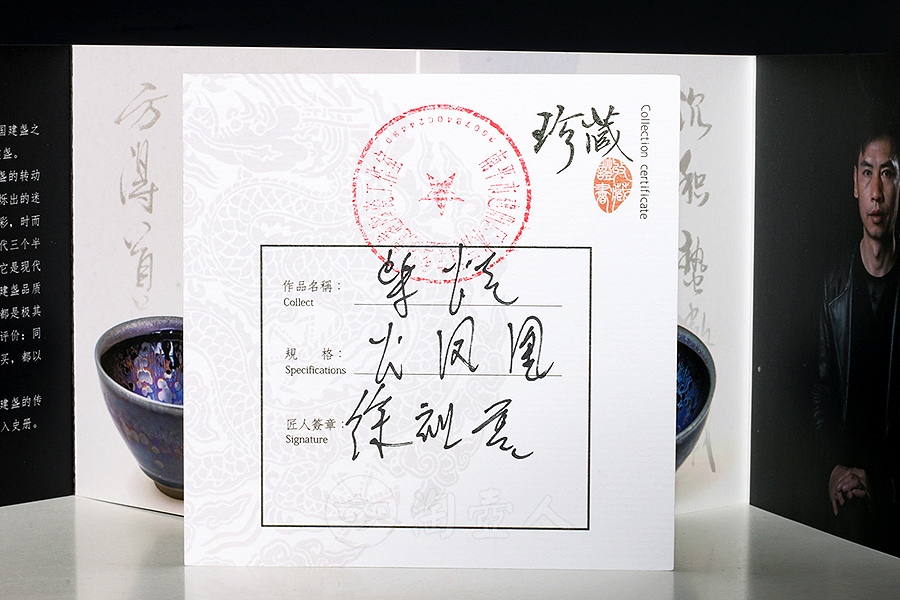 国建盏之
盏。
盏的转动
烁出的迷
彩，时而
代三个半
它是现代
建盏品质
都是极其
评价：同
买，都以
建盏的传
入史册。
方得首
珍藏
Collection certificate
南平市建阳区
工作室
作品名稱： 柴烧
Collect
規 格： 火凤凰
Specifications
匠人簽章： 徐
Signature
壶人
沉积